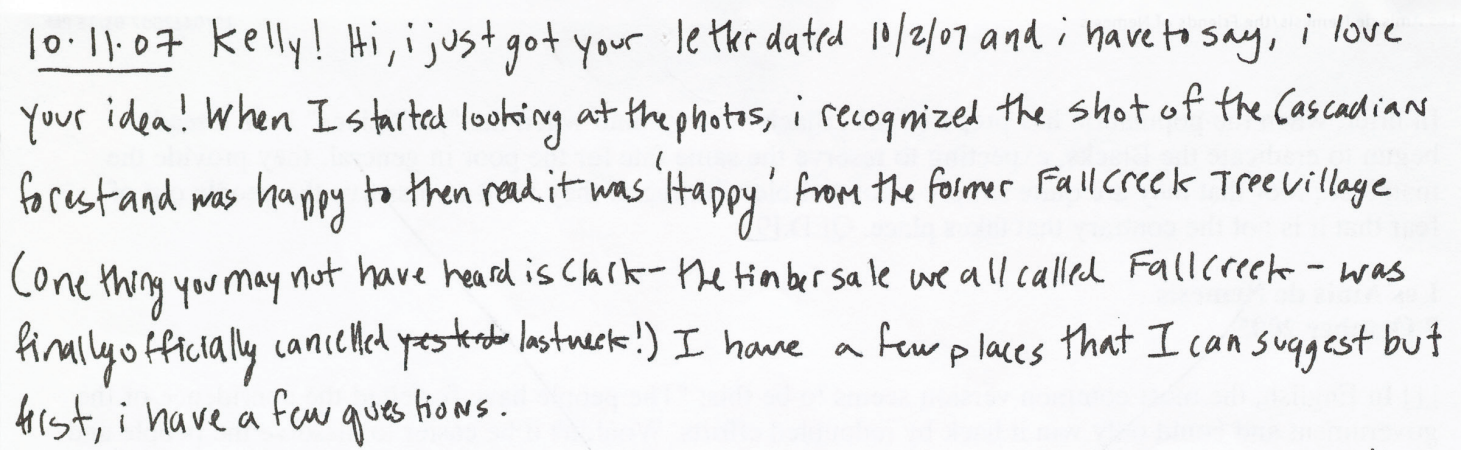 10.11.07 Kelly! Hi, i just got your letter dated 10/2/07 and i have to say, i love
your idea! When I started looking at the photos, i recognized the shot of the Cascadian
forest and was happy to then read it was 'Happy' from the former Fall Creek Tree Village
(one thing you may not have heard is Clark - the timber sale we all called Fall Creek - was
finally officially cancelled last week!) I have a few places that I can suggest but
first, i have a few questions.